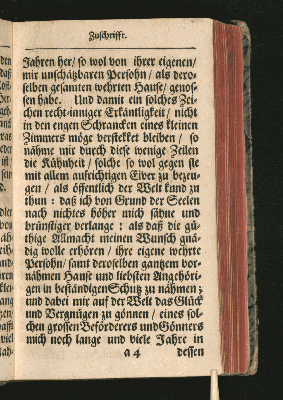 Zuschrifft.
Jahren her/ so wol von ihrer eigenen/
mir unschätzbaren Persohn/ als dero-
selben gesamten wehrten Hause/ genos-
sen habe. Und damit ein solches Zei-
chen recht-inniger Erkäntligkeit/ nicht
in den engen Schrancken eines kleinen
Zimmers möge verstekket bleiben/ so
nähme mir durch diese wenige Zeilen
die Kühnheit/ solche so wol gegen sie
mit allem aufrichtigen Eiver zu bezeu-
gen/ als öffentlich der Welt kund zu
thun: daß ich von Grund der Seelen
nach nichtes höher mich sähne und
brünstiger verlange: als daß die gü-
thige Allmacht meinen Wunsch gnä-
dig wolle erhören/ ihre eigene wehrte
Persohn/ samt deroselben gantzem vor-
nähmen Hause und liebsten Angehöri-
gen in beständigen Schutz zu nähmen;
und dabei mir auf der Welt das Glück
und Vergnügen zu gönnen/ eines sol-
chen grossen Beförderers und Gönners
mich noch lange und viele Jahre in
a 4 dessen